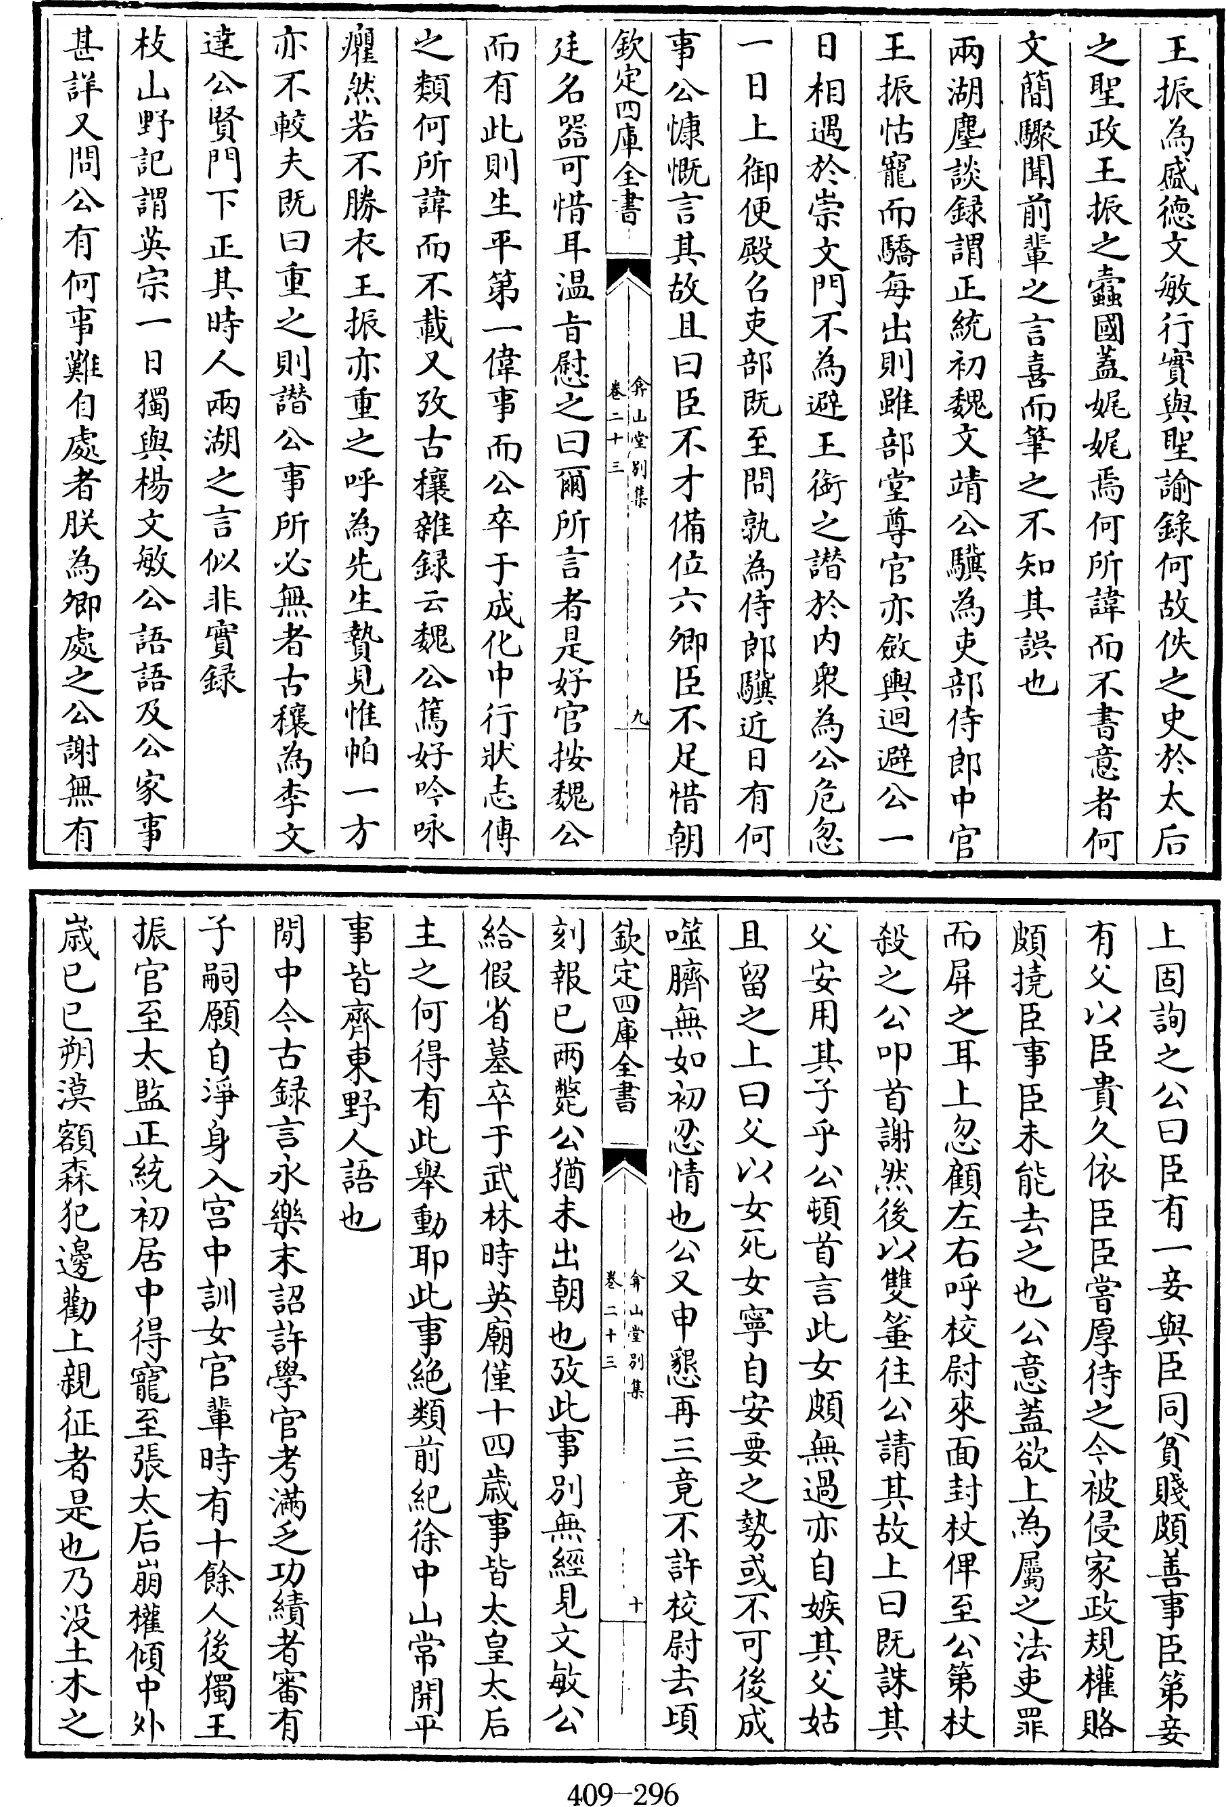 王振為盛德文敏行實與聖諭錄何故佚之史於太后
之聖政王振之蠹國蓋娓娓焉何所諱而不書意者何
文簡驟聞前輩之言喜而筆之不知其誤也
兩湖麈談録謂正統初魏文靖公驥為吏部侍郎中官
王振怙寵而驕每出則雖部堂尊官亦斂輿迴避公一
日相遇於崇文門不為避王銜之譖於内衆為公危忽
一日上御便殿召吏部既至問孰為侍郎驥近日有何
事公慷慨言其故且曰臣不才備位六卿臣不足惜朝
欽定四庫全書
弇山堂別集
卷二十三
九
廷名器可惜耳温旨慰之曰爾所言者是好官按魏公
而有此則生平第一偉事而公卒于成化中行狀志傳
之類何所諱而不載又攷古穰雜録云魏公篤好吟咏
癯然若不勝衣王振亦重之呼為先生贄見惟帕一方
亦不較夫既曰重之則譖公事所必無者古穰為李文
達公賢門下正其時人兩湖之言似非實録
枝山野記謂英宗一日獨與楊文敏公語語及公家事
甚詳又問公有何事難自處者朕為卿處之公謝無有
上固詢之公曰臣有一妾與臣同貧賤頗善事臣第妾
有父以臣貴久依臣臣嘗厚待之今被侵家政規權賂
頗撓臣事臣未能去之也公意蓋欲上為屬之法吏罪
而屏之耳上忽顧左右呼校尉來面封杖俾至公第杖
殺之公叩首謝然後以雙箠往公請其故上曰既誅其
父安用其子乎公頓首言此女頗無過亦自嫉其父姑
且留之上曰父以女死女寧自安要之勢或不可後成
噬臍無如初忍情也公又申懇再三竟不許校尉去頃
欽定四庫全書
弇山堂別集
卷二十三
十
刻報已兩斃公猶未出朝也攷此事別無經見文敏公
給假省墓卒于武林時英廟僅十四歳事皆太皇太后
主之何得有此舉動耶此事絶類前紀徐中山常開平
事皆齊東野人語也
閒中今古録言永樂末詔許學官考滿乏功績者審有
子嗣願自淨身入宫中訓女官輩時有十餘人後獨王
振官至太監正統初居中得寵至張太后崩權傾中外
歳已巳朔漠額森犯邊勸上親征者是也乃没土木之
409-296